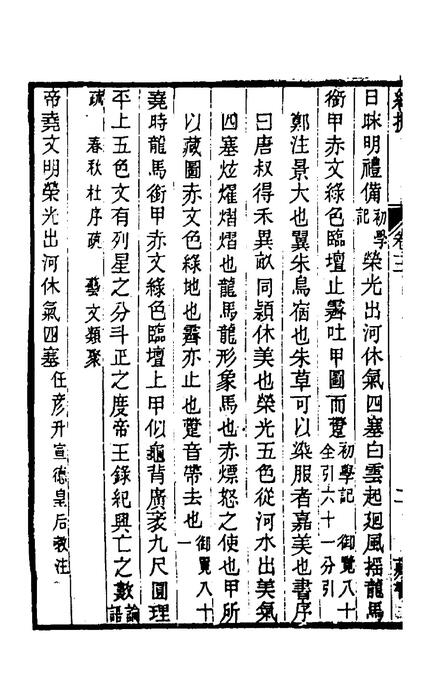 日昧明禮備初學記榮光出河休氣四塞白雲起廻風搖龍馬
銜甲赤文綠色臨壇止霽吐甲圖而䠠初學記御覽八十全引六十一分引
鄭注景大也翼朱鳥宿也朱草可以染服者嘉美也書序
曰唐叔得禾異畝同穎休美也榮光五色從河水出美氣
四塞炫燿熠熠也龍馬龍形象馬也赤熛怒之使也甲所
以藏圖赤文色綠地也霽亦止也䠠音帶去也御覽八十一
堯時龍馬銜甲赤文綠色臨壇上甲似龜背廣袤九尺圓理
平上五色文有列星之分斗正之度帝王錄紀興亡之數論語
疏春秋杜序疏藝文類聚
帝堯文明榮光出河休氣四塞任彥升宣德皇后敎注